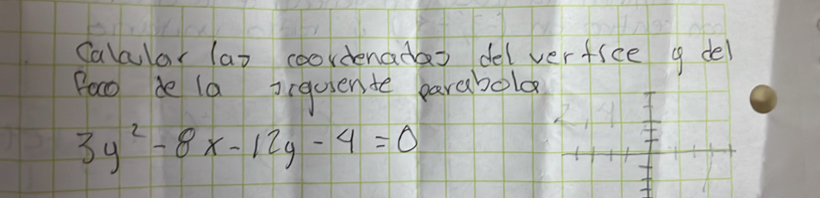 Calcular las coordenadas del vertice y del
foco de la siguiente parabola
3y² - 8x - 12y - 4 = 0